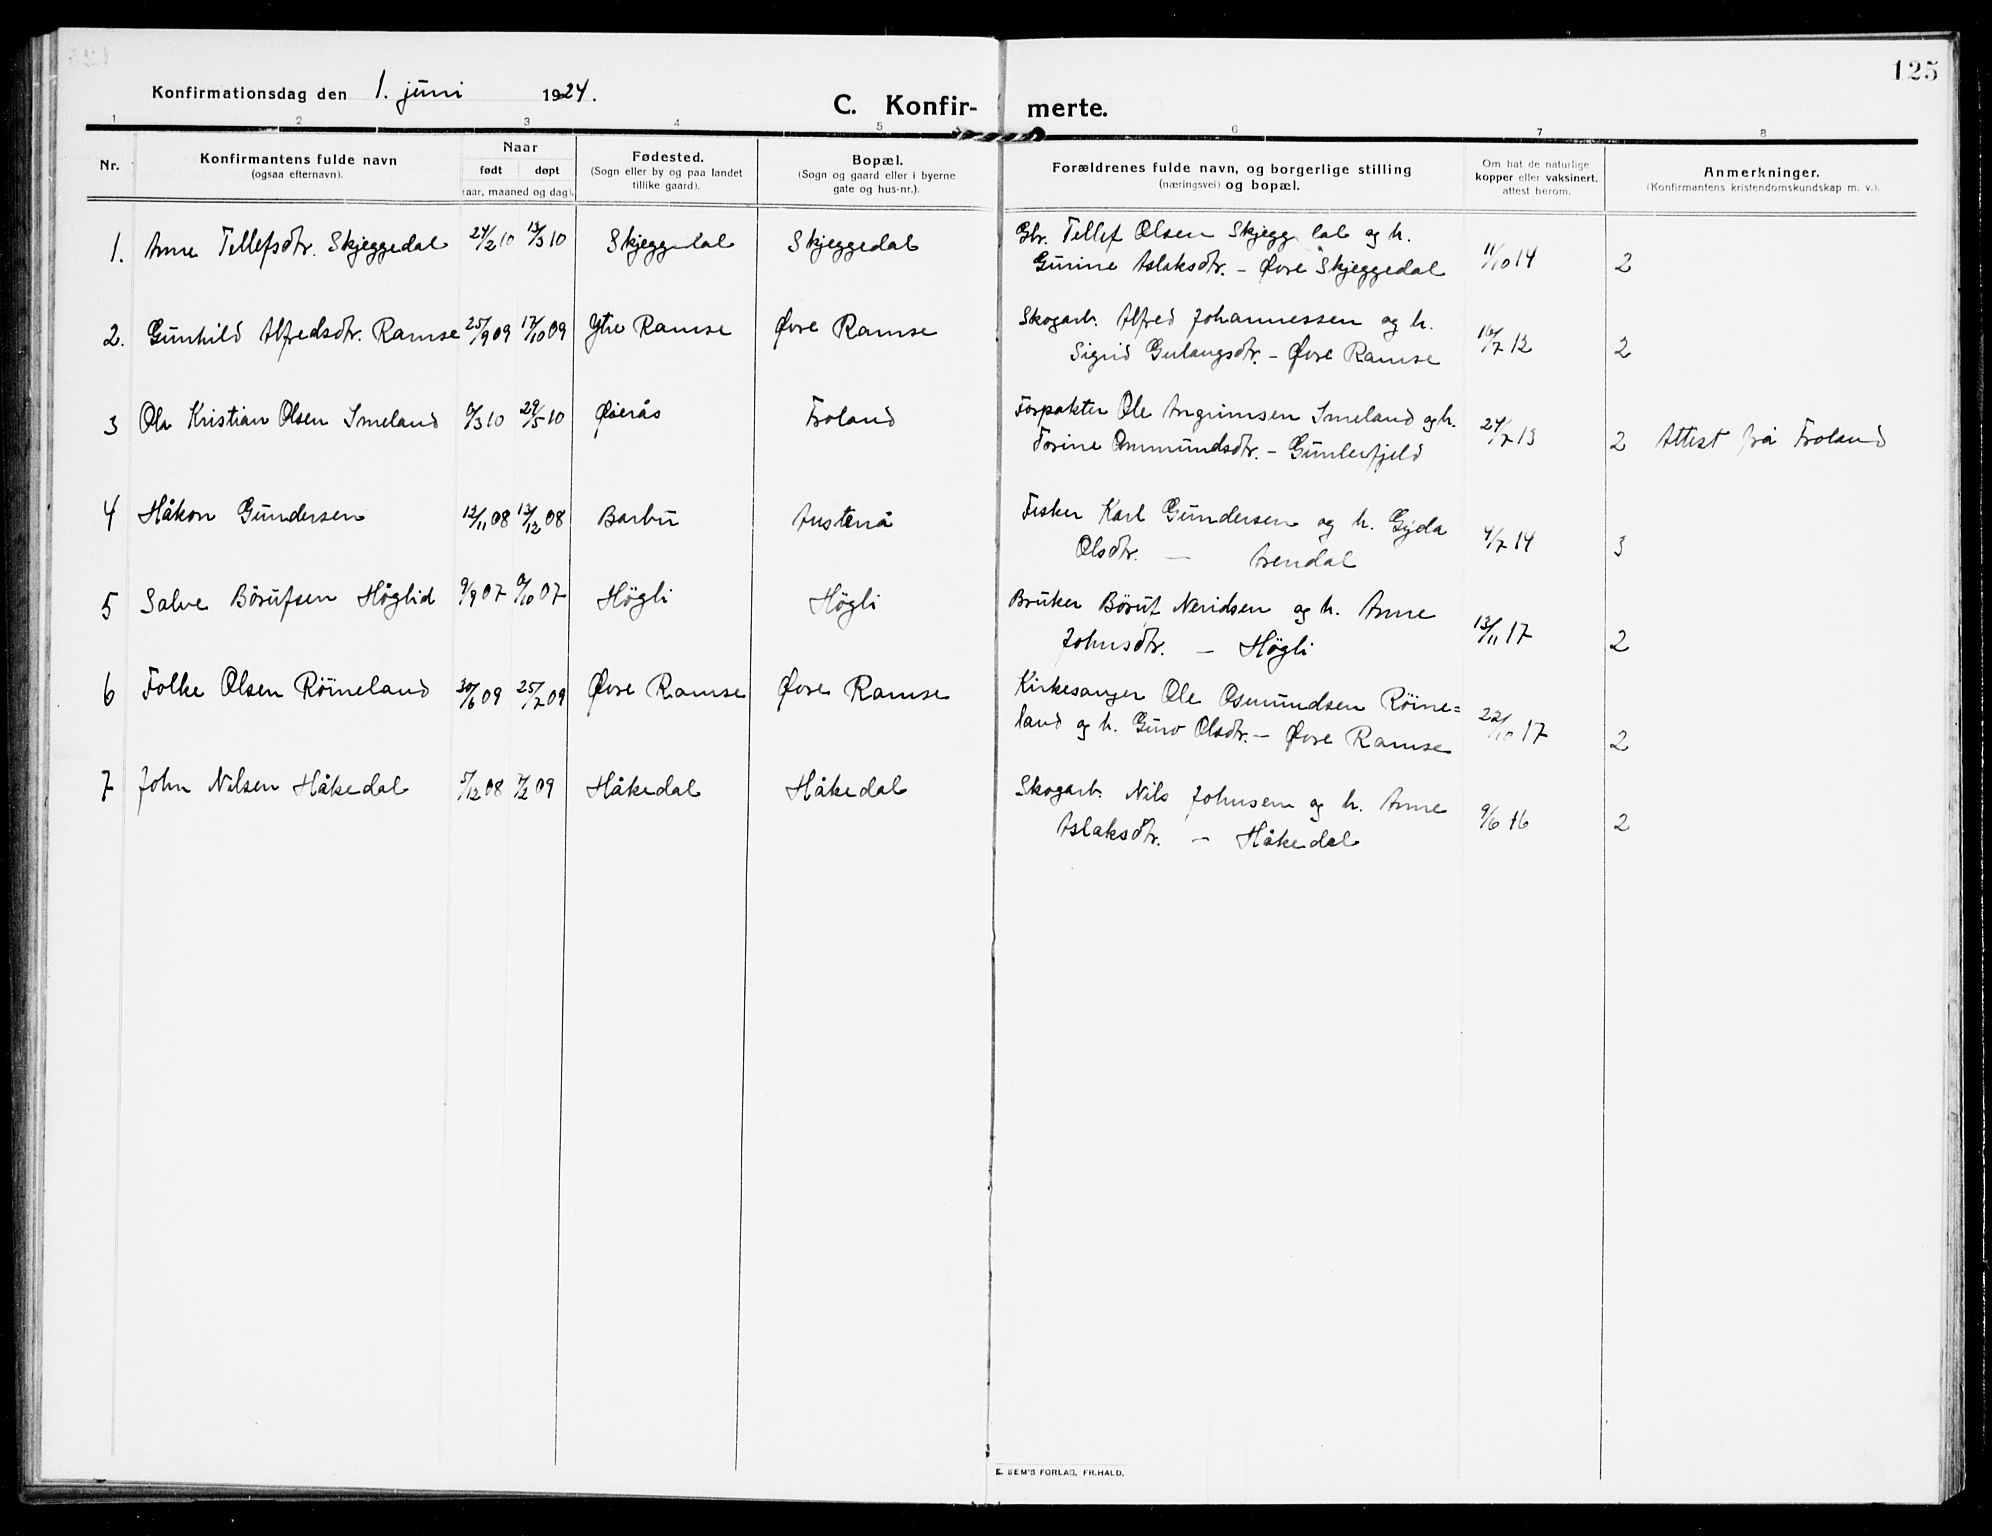 125
Konfirmationsdag den 1. juni 1924.
C. Konfir- merte.
1 2 3 4 5 6 7 8
Nr.
Konfirmantens fulde navn
(ogsaa efternavn).
Naar
født døpt
(aar, maaned og dag).
Fødested.
(Sogn eller by og paa landet
tillike gaard).
Bopæl.
(Sogn og gaard eller i byerne
gate og hus-nr.).
Forældrenes fulde navn, og borgerlige stilling
(næringsvei) og bopæl.
Om hat de naturlige
kopper eller vaksinert,
attest herom.
Anmerkninger.
(Konfirmantens kristendomskundskap m. v.).
1. Anne Tellefsdtr. Skjeggedal 24/2 10 13/3 10 Skjeggedal Skjeggedal Gbr. Tellef Olsen Skjeggedal og h.
Gunine Aslaksdtr. - Øvre Skjeggedal 11/10 14 2
2. Gunhild Alfredsdtr. Ramse 25/9 09 17/10 09 Ytre Ramse Øvre Ramse Skogarb. Alfred Johannessen og h.
Sigrid Gulaugsdtr. - Øvre Ramse 16/7 12 2
3 Ola Kristian Olsen Imeland /3 10 29/5 10 Øierås Froland Forpakter Ole Angrimsen Imeland og h.
Torine Ommundsdtr. - 24/7 13 2 Attest frå Froland
4 Håkon Gundersen 12/11 08 13/12 08 Barbu Austenå Fisker Karl Gundersen og h. Gyda
Olsdtr. — Arendal 4/7 14 3
5 Salve Börufsen Höglid 9/9 07 /10 07 Högli Högli Bruker Böruf Neridsen og h. Anne
Johnsdtr. — Högli 13/11 17 2
6 Folke Olsen Röineland 30/6 09 25/7 09 Øvre Ramse Øvre Ramse Kirkesanger Ole Osmundsen Röine=
land og h. Guro Olsdtr. - Øvre Ramse 22/10 17 2
7 John Nilsen Håkedal 5/12 08 7/2 09 Håkedal Håkedal Skogarb. Nils Johnsen og h. Anne
Aslaksdtr. — Håkedal 9/6 16 2
E. SEM'S FORLAG, FR.HALD.